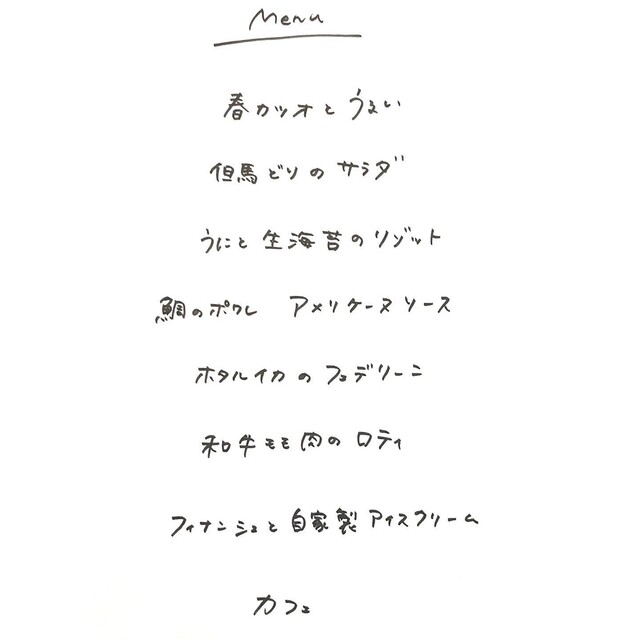 Menu
春カツオとうるい
但馬どりのサラダ
うにと生海苔のリゾット
鯛のポワレ アメリケーヌソース
ホタルイカのフェデリーニ
和牛モモ肉のロティ
フィナンシェと自家製アイスクリーム
カフェ